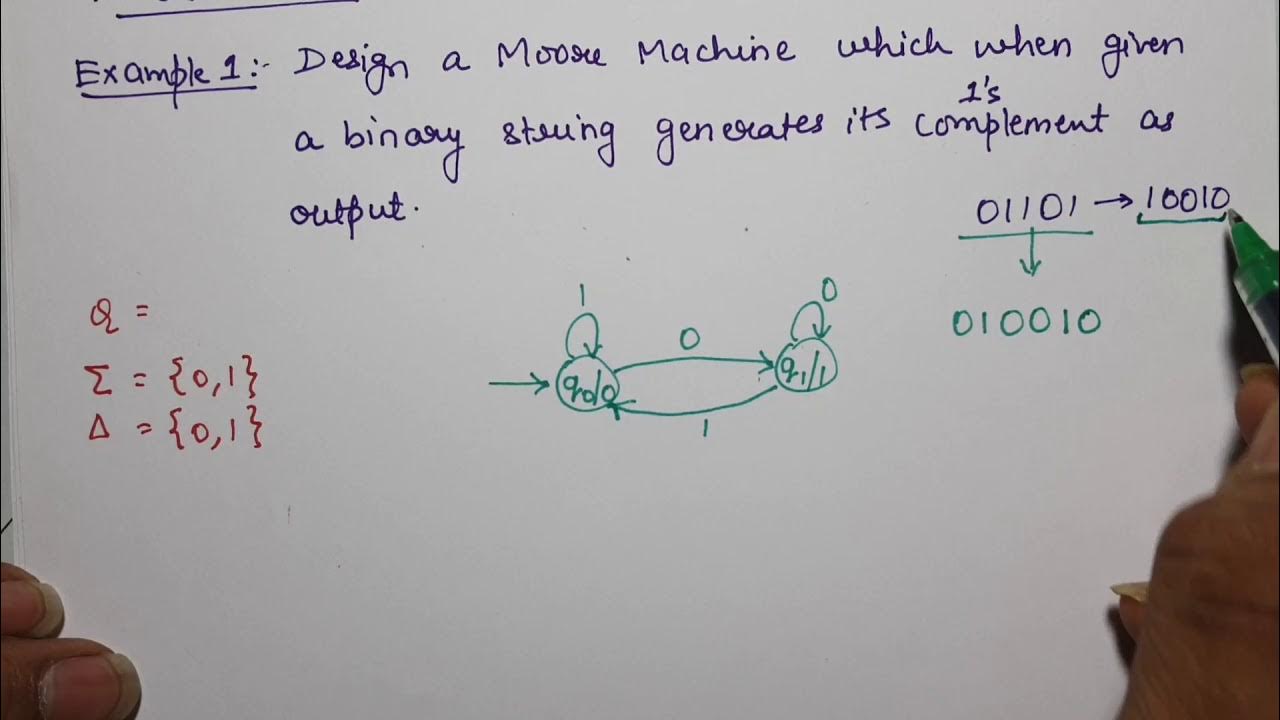 Example 1:- Design a Moore Machine which when given
1's
a binary string generates its complement as
output.
01101 → 10010
010010
Q =
Σ = {0,1}
Δ = {0,1}
1
0
0
q0/0
q1/1
1